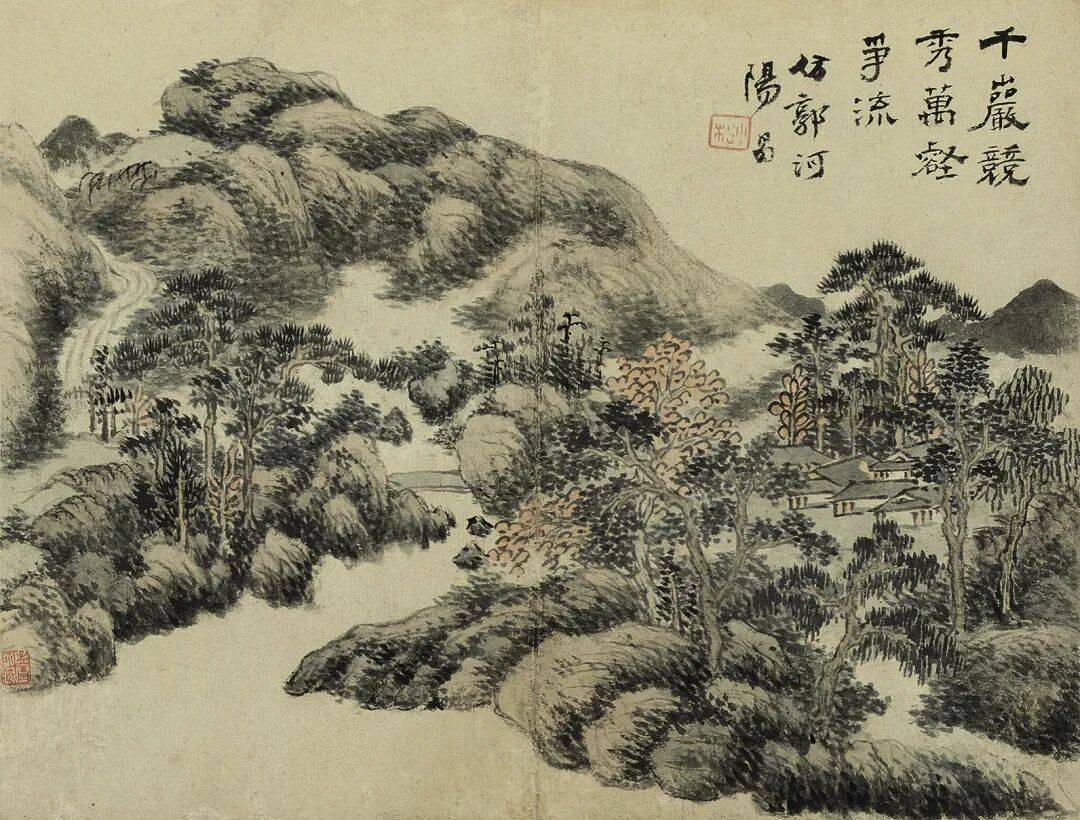 千巖競
秀萬壑
爭流
仿郭河
陽